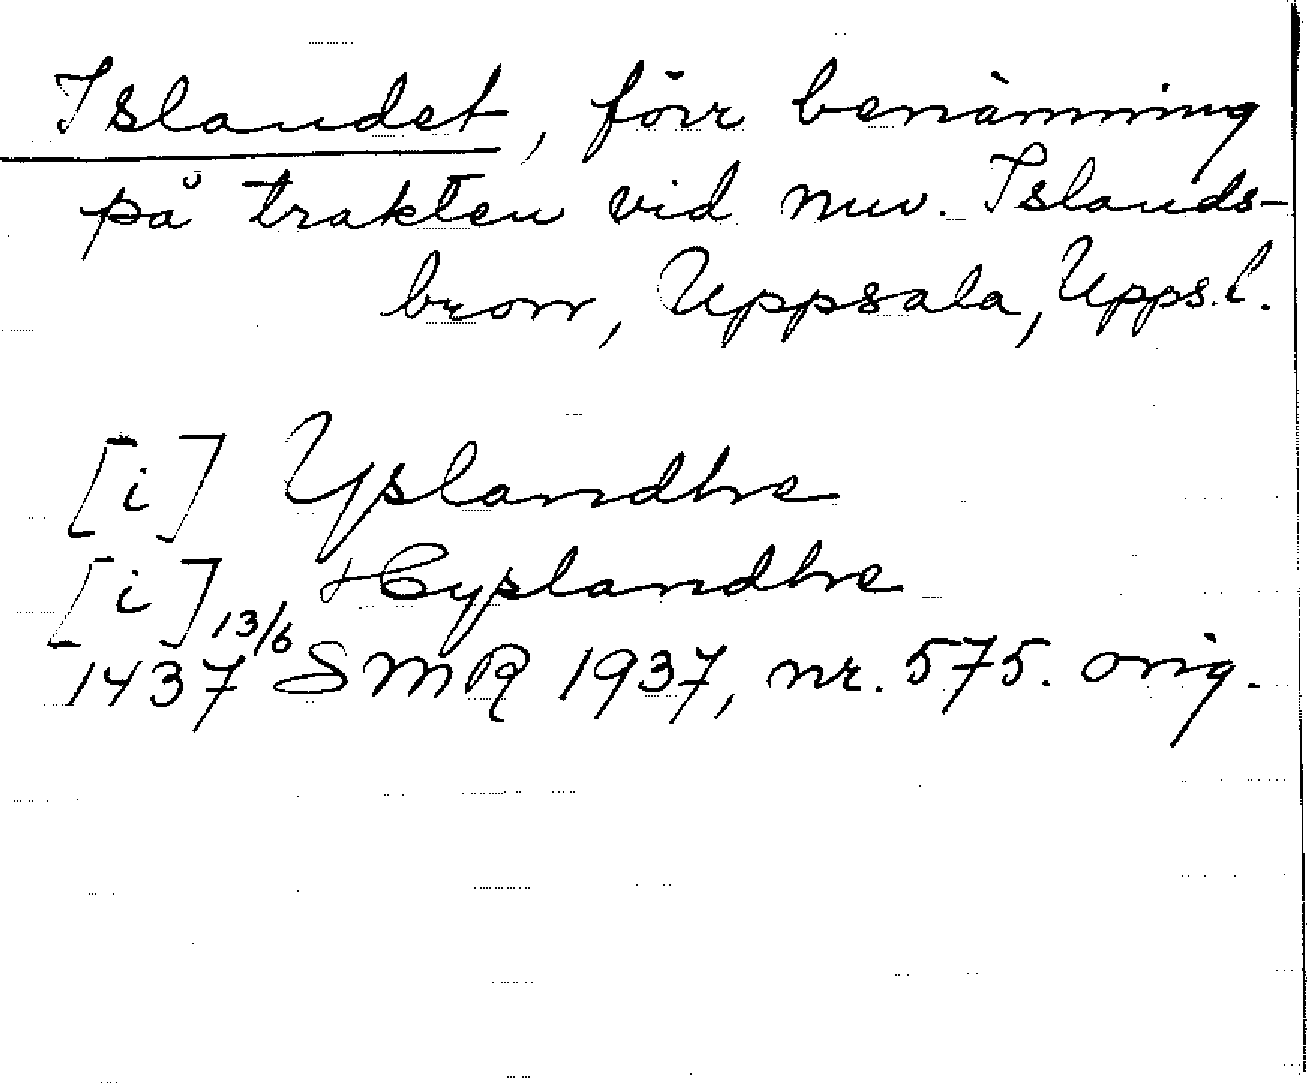 Islandet, förr benämning
på trakten vid nuv. Islands-
bron, Uppsala, Upps. l.
[i] Yslandhe
[i] Hyslandhe
1437 13/6 SMR 1937, nr. 575. orig.